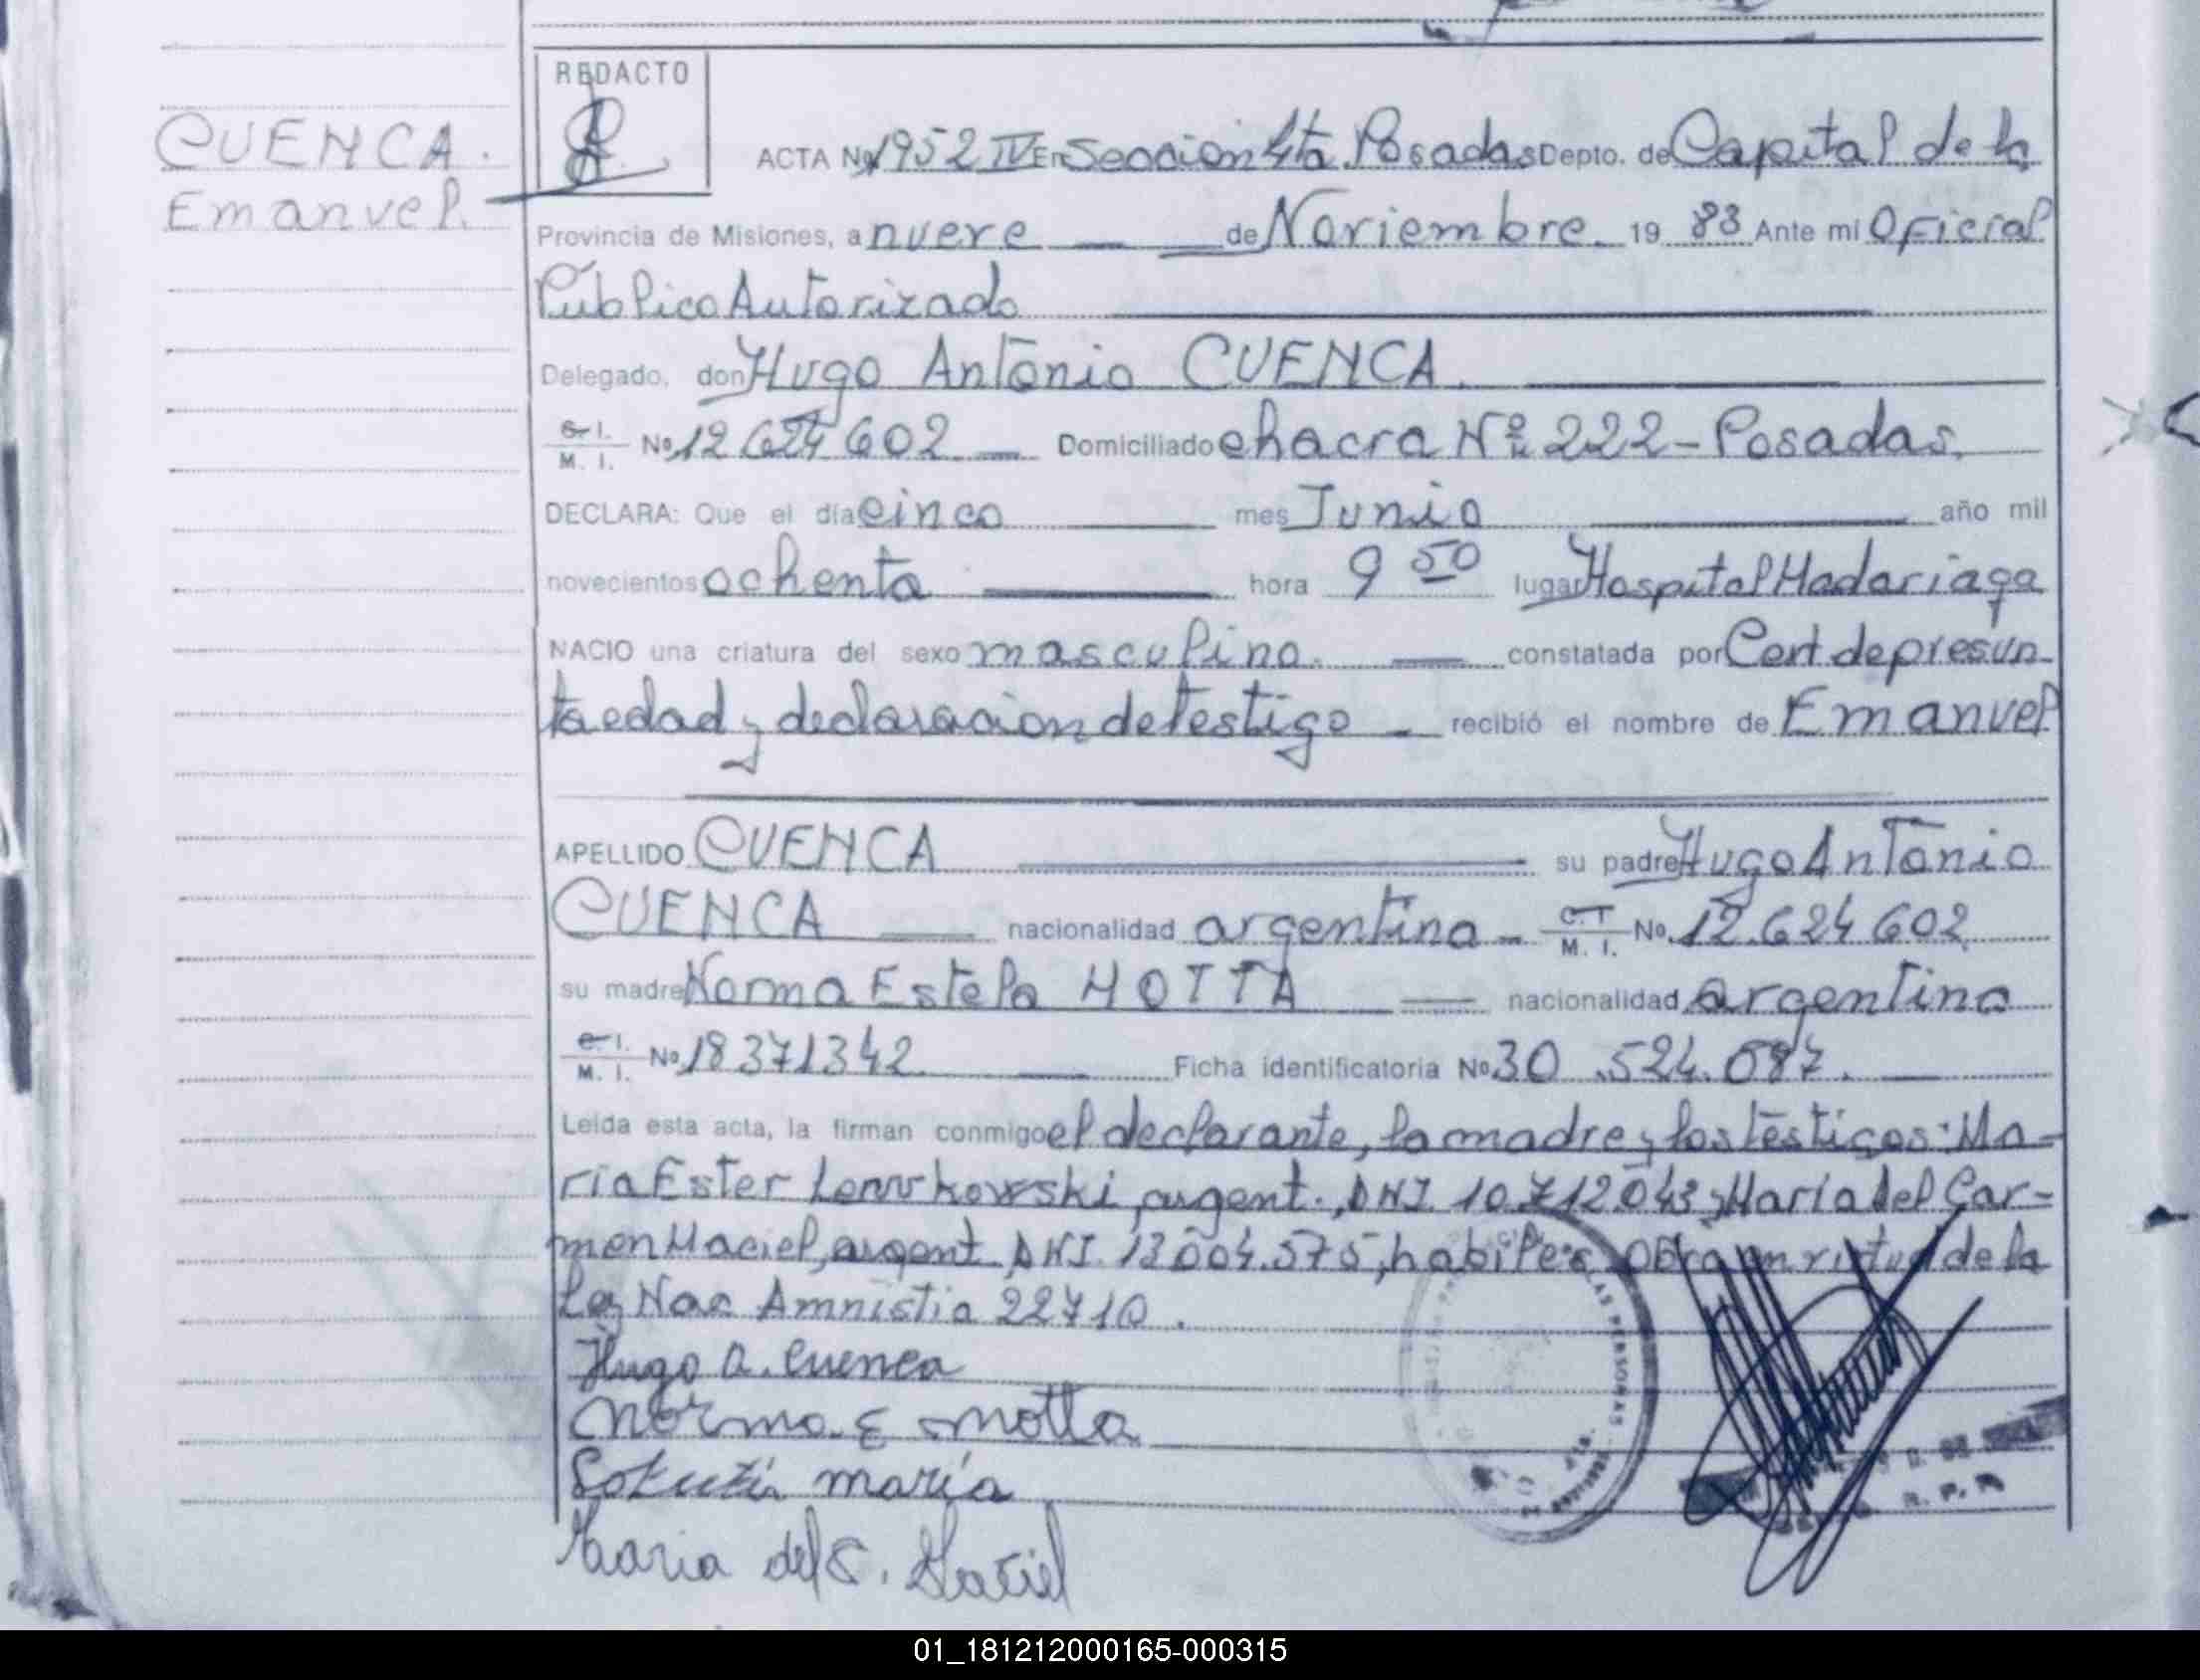 REDACTO
CUENCA.
Emanuel.
ACTA Nº 1952 IV En Seccion 4ta. Posadas Depto. de Capital de la
Provincia de Misiones, a nueve de Noviembre. 19 83 Ante mi Oficial
Público Autorizado
Delegado, don Hugo Antonio CUENCA.
C. I. M. I. Nº 12 624 602 Domiciliado chacra Nº 222 - Posadas.
DECLARA: Que el día cinco mes Junio año mil
novecientos ochenta hora 9 50 lugar Hospital Madariaga
NACIO una criatura del sexo masculino. constatada por Cert de presun
ta edad y declaracion de testigo - recibió el nombre de Emanuel
APELLIDO CUENCA su padre Hugo Antonio
CUENCA nacionalidad argentina - C. I. M. I. Nº 12.624 602
su madre Norma Estela MOTTA nacionalidad argentina
C. I. M. I. Nº 18371342 Ficha identificatoria Nº 30.524.087.
Leida esta acta, la firman conmigo el declarante, la madre y los testigos: Ma-
ria Ester argent., DNI. 10.712.043 y Maria del Car-
men Maciel, argent. DNI. 13004.575, habiles. Obra en virtud de la
Ley Nac Amnistia 22710.
Hugo A. Cuenca
Norma E Motta
maría
Maria del C. Maciel
AS PERSONAS
01_181212000165-000315